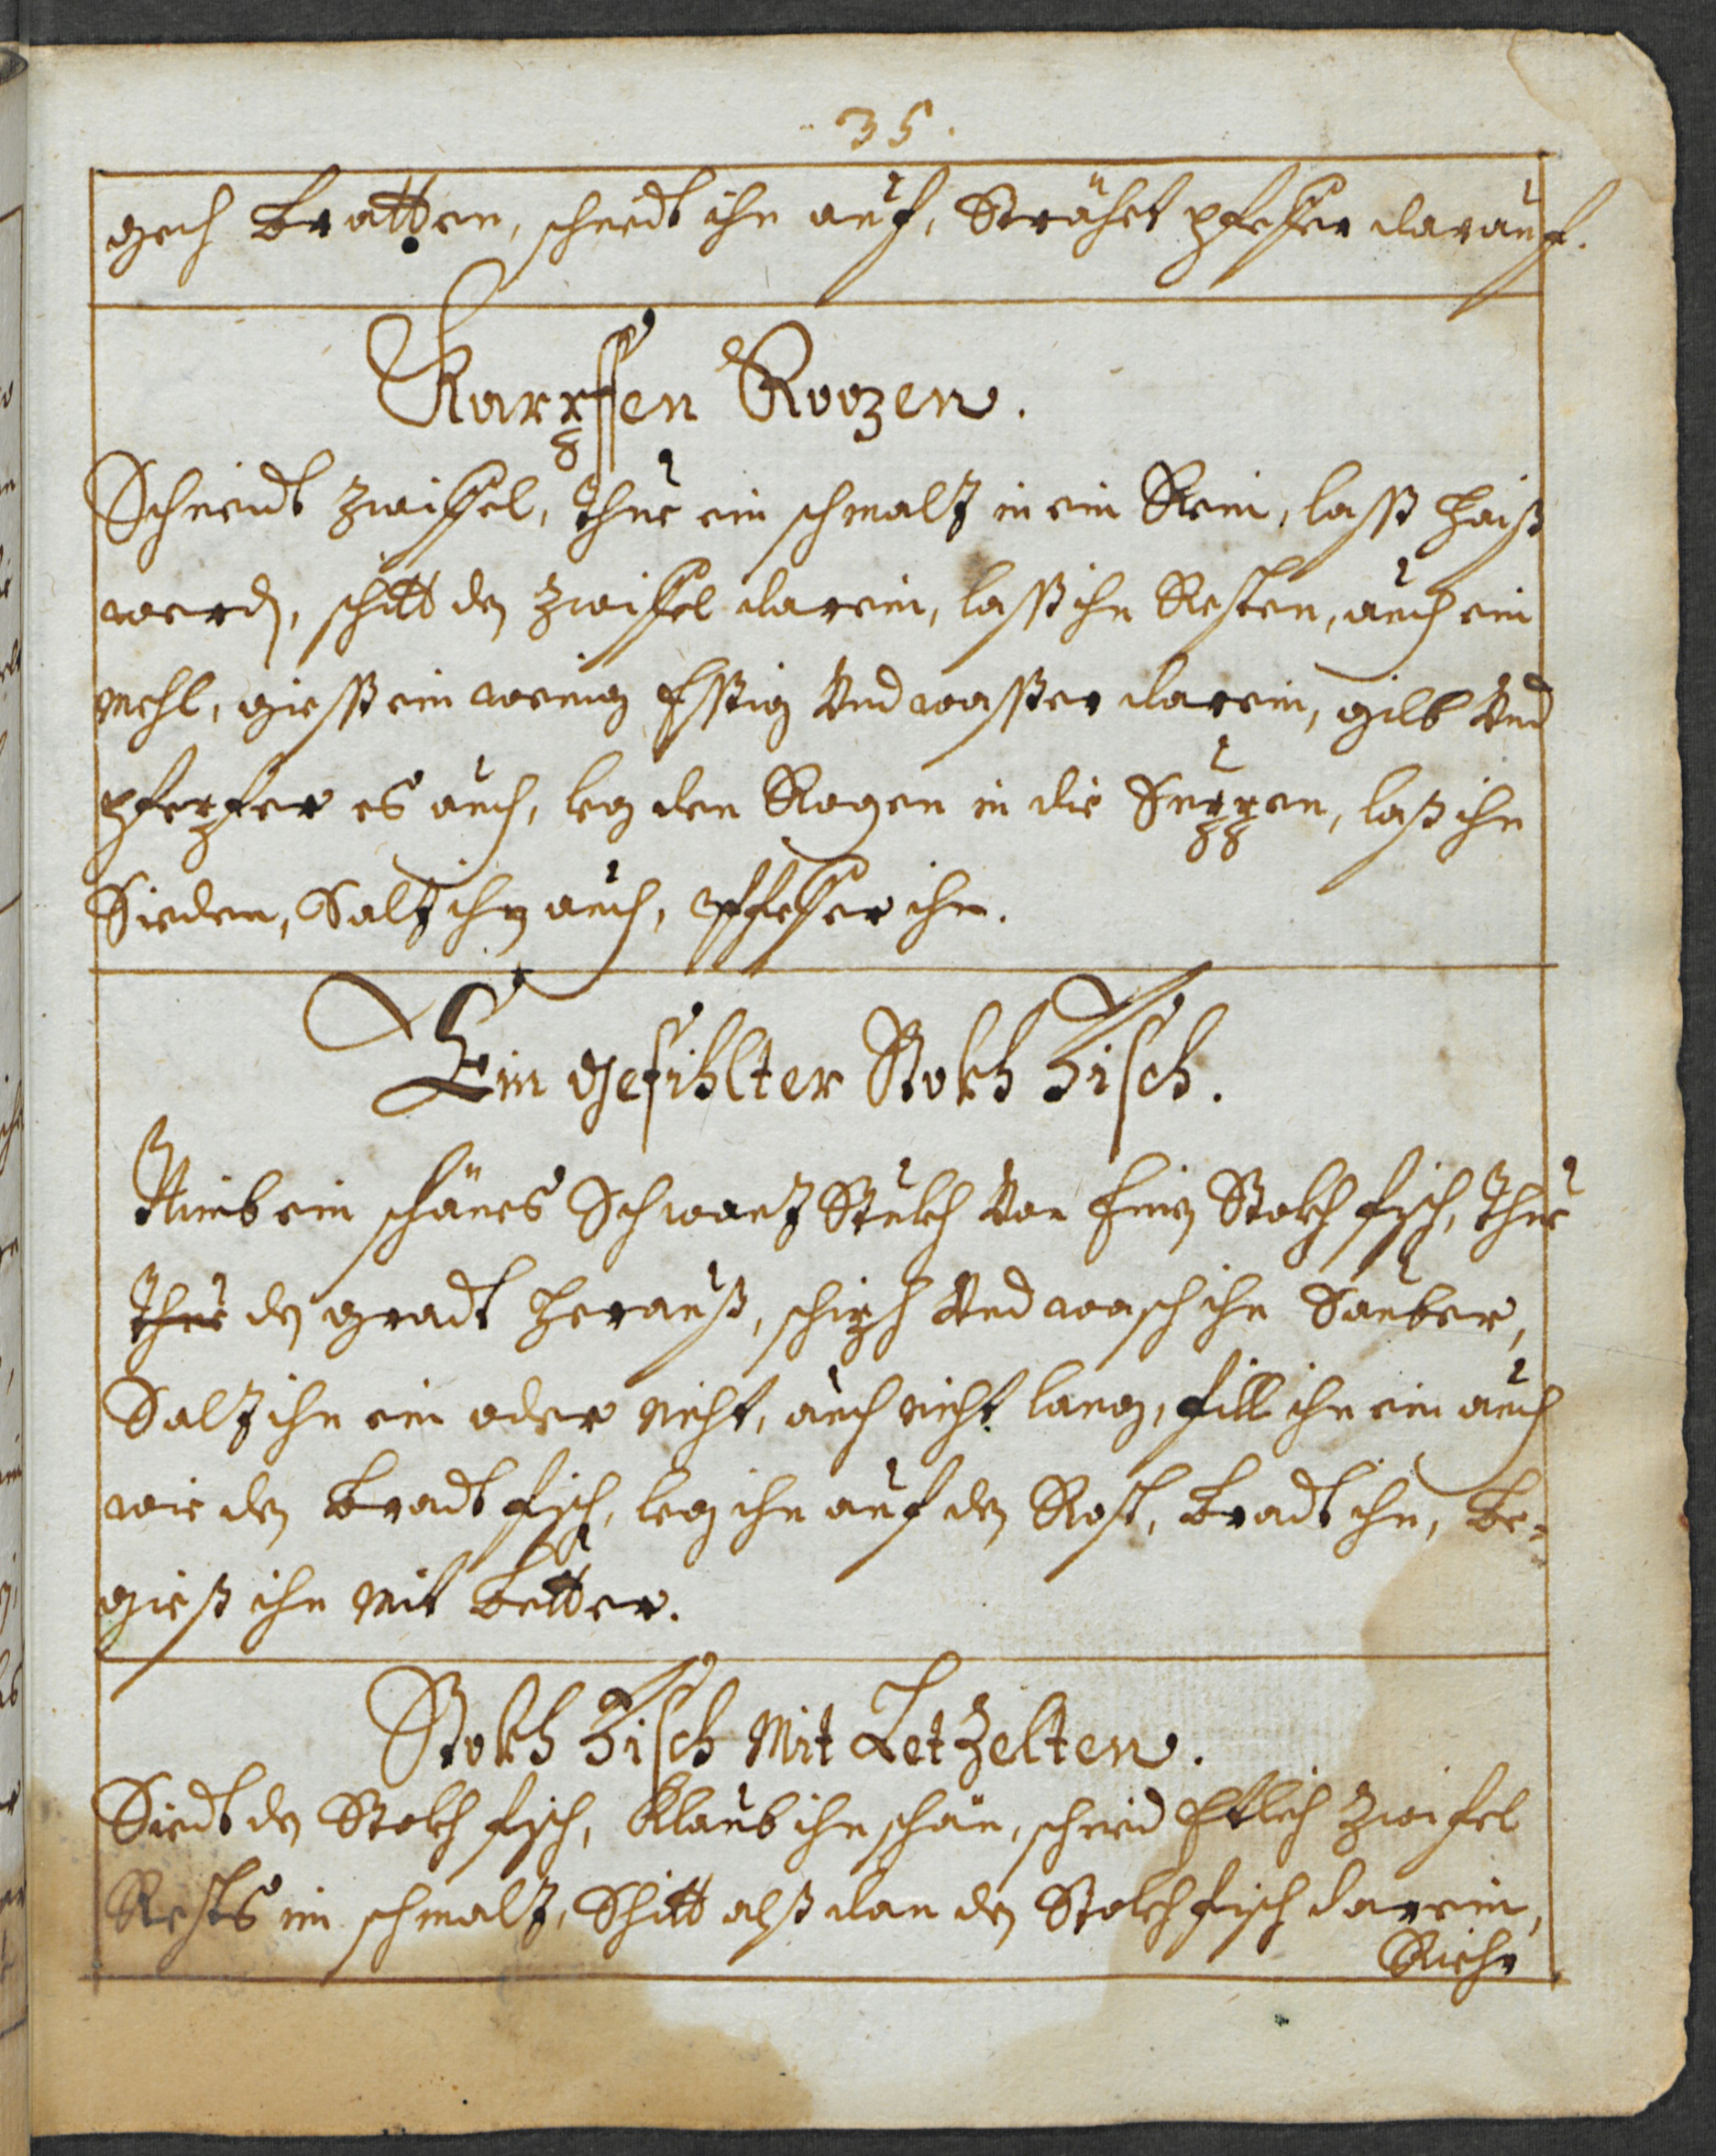 35.
gech Bratten, schneidt ihn auf, Ströhet pfeffer darauf.
Karpffen Roozen.
Schneidt zwiffel, thue ein schmalz in ein Rein, lasß haiß
werdn, schitt den zwiffel darein, lasß ihn Resten, auch ein
mehl, giesß ein wenig Essig Und waßer darein, gilb Und
pfepfer es auch, leg den Rogen in die Suppen, laß ihn
Sieden, Salz ihn auch, pfeffer ihn.
Ein gefihlter Stokh Fisch.
Nimb ein schönes Schwanz Stukh Von Einem Stokh fisch, thue
thue den gradt herauß, schieph Und wasch ihn Sauber,
Salz ihn ein oder nicht, auch nicht lang, fill ihn ein auch
wie den Bradt fisch, leg ihn auf den Rost, Bradt ihn, Be=
gieß ihn mit Butter.
Stokh Fisch Mit Letzelten.
Siedt den Stokh fisch, Klaub ihn schön, schneid Etlich zwifel
Rests im schmalz, Schitt alßdan den Stokh fisch darein,
Riehr